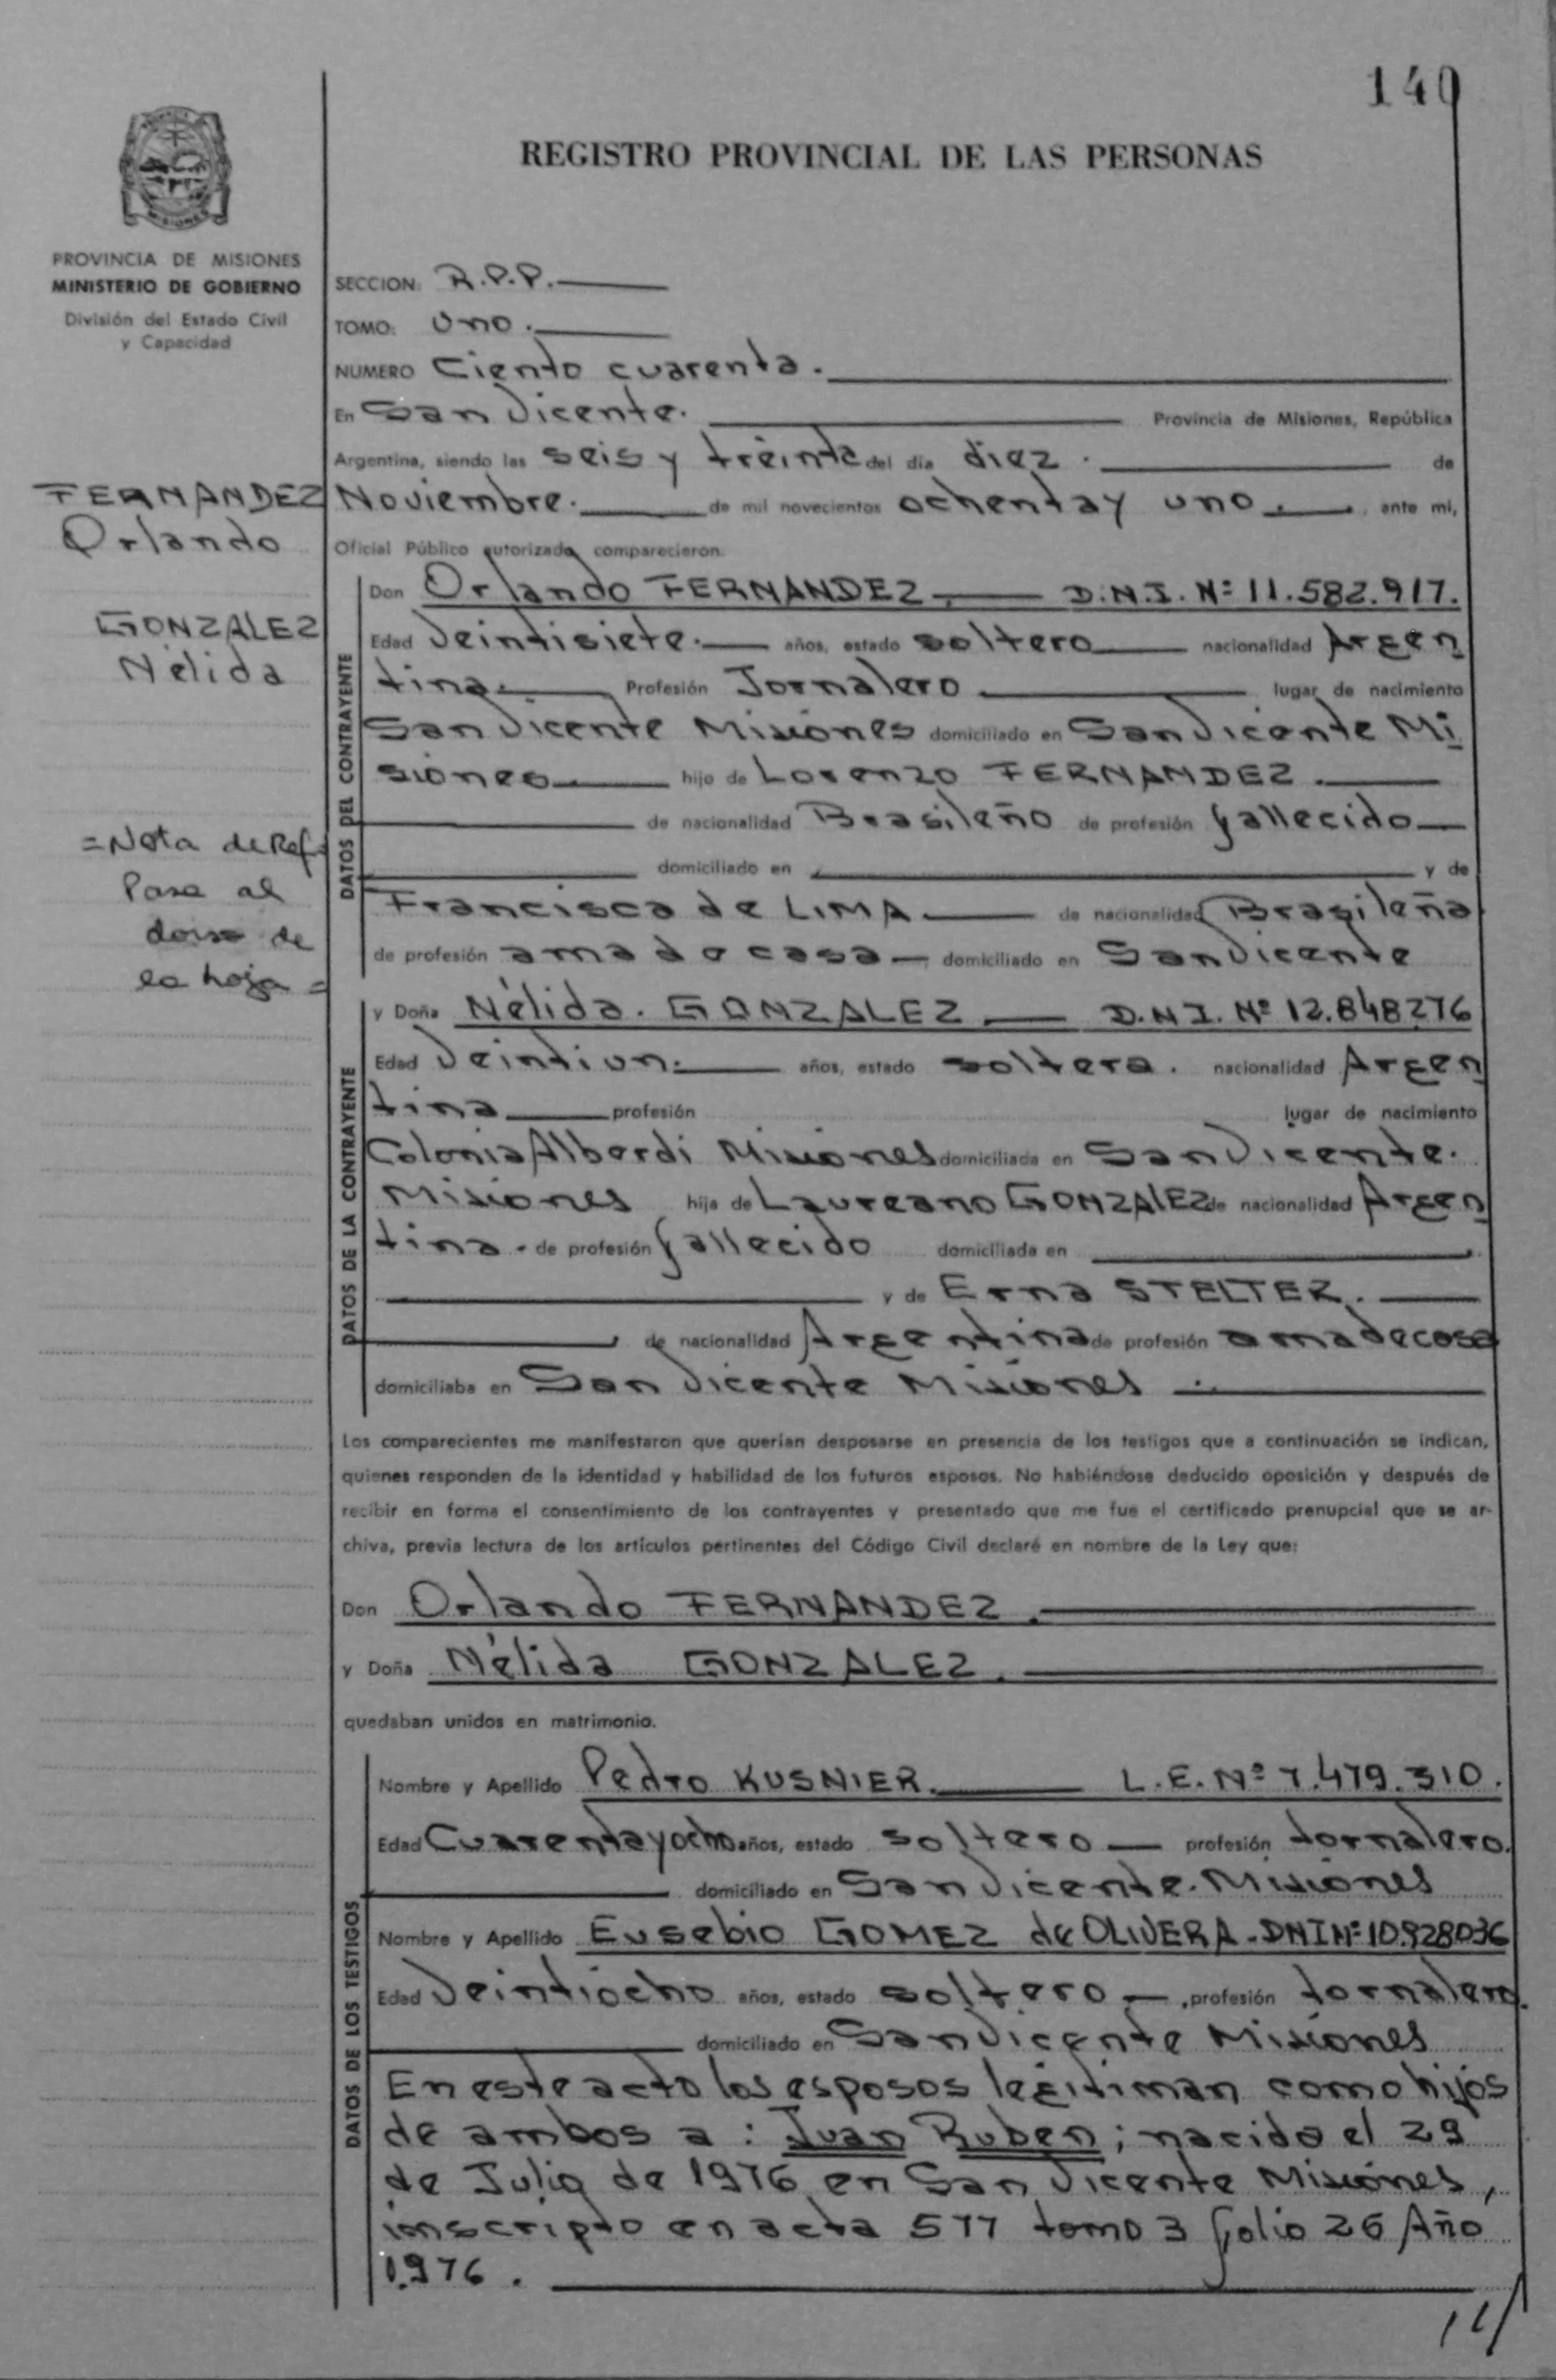 140
REGISTRO PROVINCIAL DE LAS PERSONAS
MISIONES
PROVINCIA DE MISIONES
MINISTERIO DE GOBIERNO
División del Estado Civil
y Capacidad
SECCION: R.P.P.
TOMO: Uno.
NUMERO Ciento cuarenta.
En San Vicente. Provincia de Misiones, República
Argentina, siendo las seis y treinta del día diez. de
Noviembre. de mil novecientos ochenta y uno. ante mi,
Oficial Público autorizado comparecieron.
FERNANDEZ
Orlando
GONZALEZ
Nélida
=Nota de Ref.
Pasa al
dorso de
la hoja=
DATOS DEL CONTRAYENTE
Don Orlando FERNANDEZ. D.N.I. Nº 11.582.917.
Edad Veintisiete. años, estado soltero nacionalidad Argen
tina. Profesión Jornalero lugar de nacimiento
San Vicente Misiones domiciliado en San Vicente Mi
siones hijo de Lorenzo FERNANDEZ.
de nacionalidad Brasileño de profesión fallecido
domiciliado en y de
Francisca de LIMA de nacionalidad Brasileña.
de profesión ama de casa domiciliado en San Vicente
DATOS DE LA CONTRAYENTE
y Doña Nélida. GONZALEZ D.N.I. Nº 12.848276
Edad Veintiun. años, estado soltera. nacionalidad Argen
tina profesión lugar de nacimiento
Colonia Alberdi Misiones domiciliada en San Vicente.
Misiones hija de Laureano GONZALEZ de nacionalidad Argen
tina. de profesión fallecido domiciliada en
y de Erna STELTER.
de nacionalidad Argentina de profesión ama de casa
domiciliaba en San Vicente Misiones
Los comparecientes me manifestaron que querían desposarse en presencia de los testigos que a continuación se indican,
quienes responden de la identidad y habilidad de los futuros esposos. No habiéndose deducido oposición y después de
recibir en forma el consentimiento de los contrayentes y presentado que me fue el certificado prenupcial que se ar-
chiva, previa lectura de los artículos pertinentes del Código Civil declaré en nombre de la Ley que:
Don Orlando FERNANDEZ.
y Doña Nélida GONZALEZ.
quedaban unidos en matrimonio.
DATOS DE LOS TESTIGOS
Nombre y Apellido Pedro KUSNIER. L.E. Nº 7.479.310.
Edad Cuarenta y ocho años, estado soltero profesión Jornalero.
domiciliado en San Vicente. Misiones
Nombre y Apellido Eusebio GOMEZ de OLIVERA - DNI Nº 10.928036
Edad Veintiocho años, estado soltero profesión Jornalero.
domiciliado en San Vicente Misiones
En este acto los esposos legitiman como hijos
de ambos a: Juan Ruben; nacido el 29
de Julio de 1976 en San Vicente Misiones,
inscripto en acta 577 tomo 3 folio 26 Año
1.976.